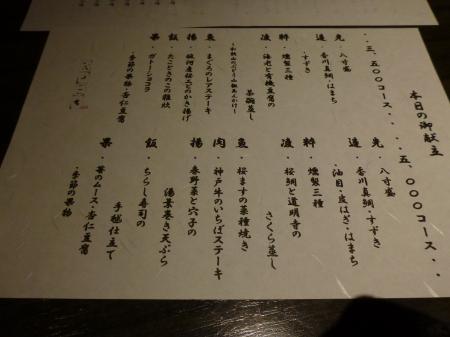 本日の御献立
・・三、五〇〇コース・・
先・八寸盛
造・香川真鯛・はまち
・すずき
粋・燻製三種
凌・海老と有機豆腐の
茶碗蒸し
まぐろのレアステーキ
揚・駿河産桜エビのかき揚げ
飯・たこときのこの雑炊
果・ガトーショコラ
・季節の果物・杏仁豆腐
・・五、〇〇〇コース・・
先・八寸盛
造・香川真鯛・すずき
・油目・皮はぎ・はまち
粋・燻製三種
凌・桜鯛と道明寺の
さくら蒸し
桜ますの菜種焼き
肉・神戸牛のいちばステーキ
揚・春野菜と穴子の
湯葉巻き天ぷら
飯・ちらし寿司の
手毬仕立て
果・苺のムース・杏仁豆腐
・季節の果物